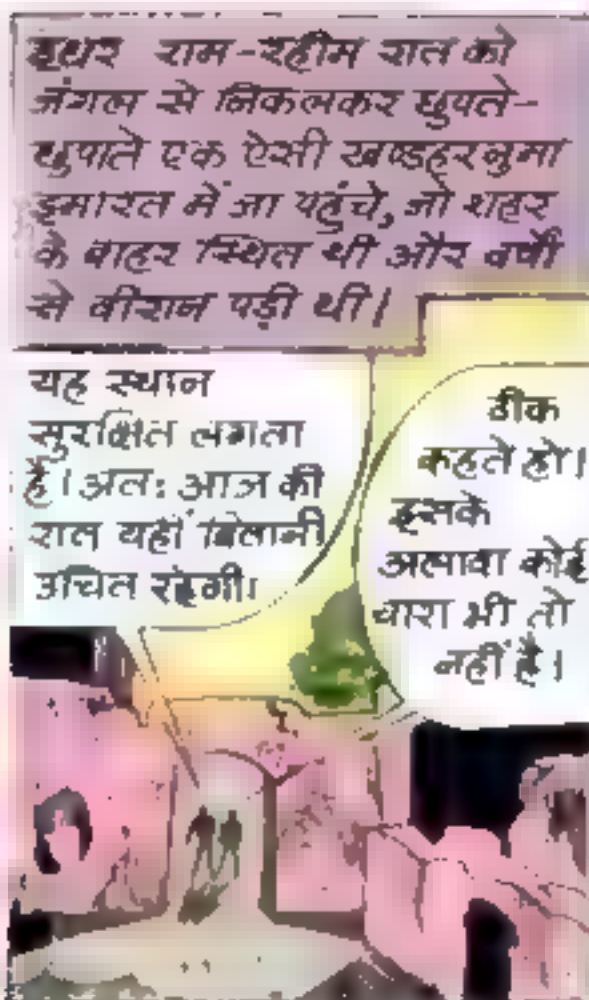 इधर राम-रहीम रात को
जंगल से निकलकर छुपते-
छुपाते एक ऐसी खण्डहरनुमा
इमारत में जा पहुंचे, जो शहर
के बाहर स्थित थी और वर्षों
से वीरान पड़ी थी।
यह स्थान
सुरक्षित लगता
है। अत: आज की
रात यहीं बितानी
उचित रहेगी।
ठीक
कहते हो।
इसके
अलावा कोई
चारा भी तो
नहीं है।